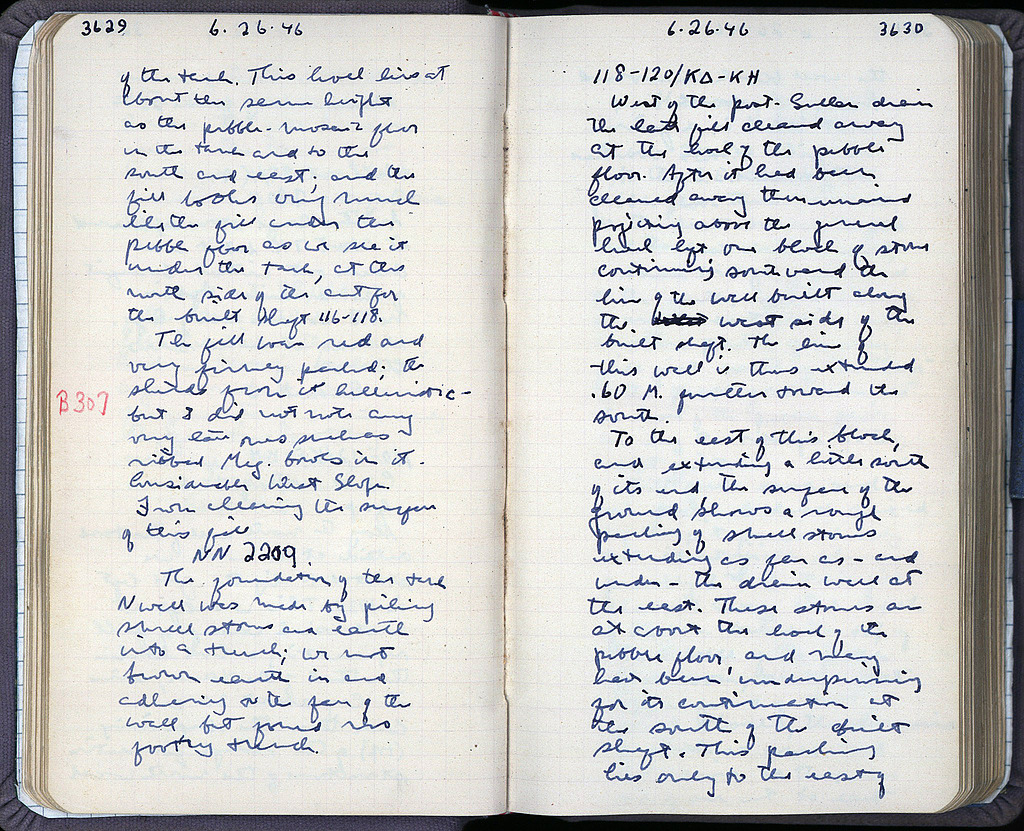 3629 6.26.46
of the tank. This level lies at
about the same height
as the pebble-mosaic floor
in the tank and to the
south and east; and the
fill looks very much
like the fill under the
pebble floor as we see it
under the tank, at the
north side of the cut for
the built shaft 116-118.
The fill was red and
very firmly packed; the
sherds from it hellenistic -
B307
but I did not note any
very late ones such as
ribbed Meg. bowls in it.
Considerable West Slope
From cleaning the surface
of this fill
NN 2209
The foundation of the tank
N wall was made by piling
small stones and earth
into a trench; we not
brown earth in and
adhering to the face of the
wall but found no
footing trench.
6.26.46 3630
118-120/ΚΔ-ΚΗ
West of the post-Sullan drain
the late fill cleared away
at the level of the pebble
floor. After it had been
cleared away there remained
projecting above the general
level left one block of stone
continuing southward the
line of the wall built along
the west side of the
built shaft. The line of
this wall is thus extended
.60 M. further toward the
south.
To the east of this block,
and extending a little south
of its end, the surface of the
ground shows a rough
packing of small stones
extending as far as - and
under - the drain wall at
the east. These stones are
at about the level of the
pebble floor, and may
have been underpinning
for its continuation at
the south of the built
shaft. This packing
lies only to the east of